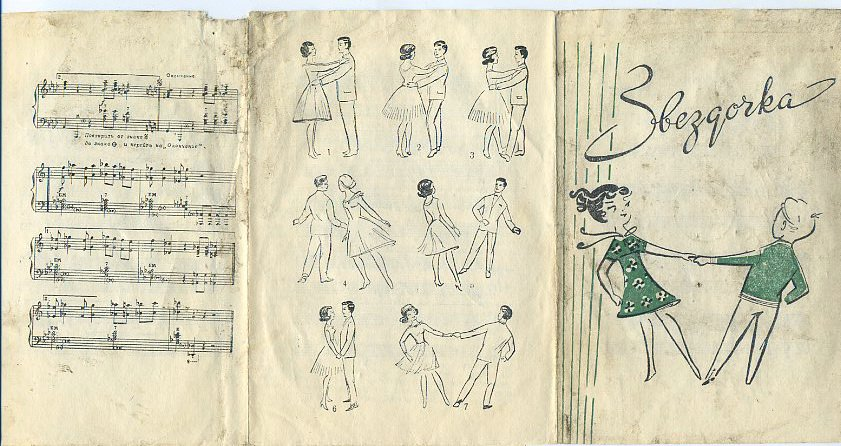 2. Окончание.
Повторить от знака
до знака и перейти на „Окончание".
1 2 3
4 5
6 7
Звездочка